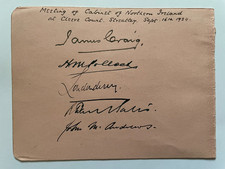 Meeting of Cabinet of Northern Ireland
at Cleeve Court, Streatley. Sept. 16th 1922.
James Craig
H M Pollock
Londonderry
R Dawson Bates
John M. Andrews.